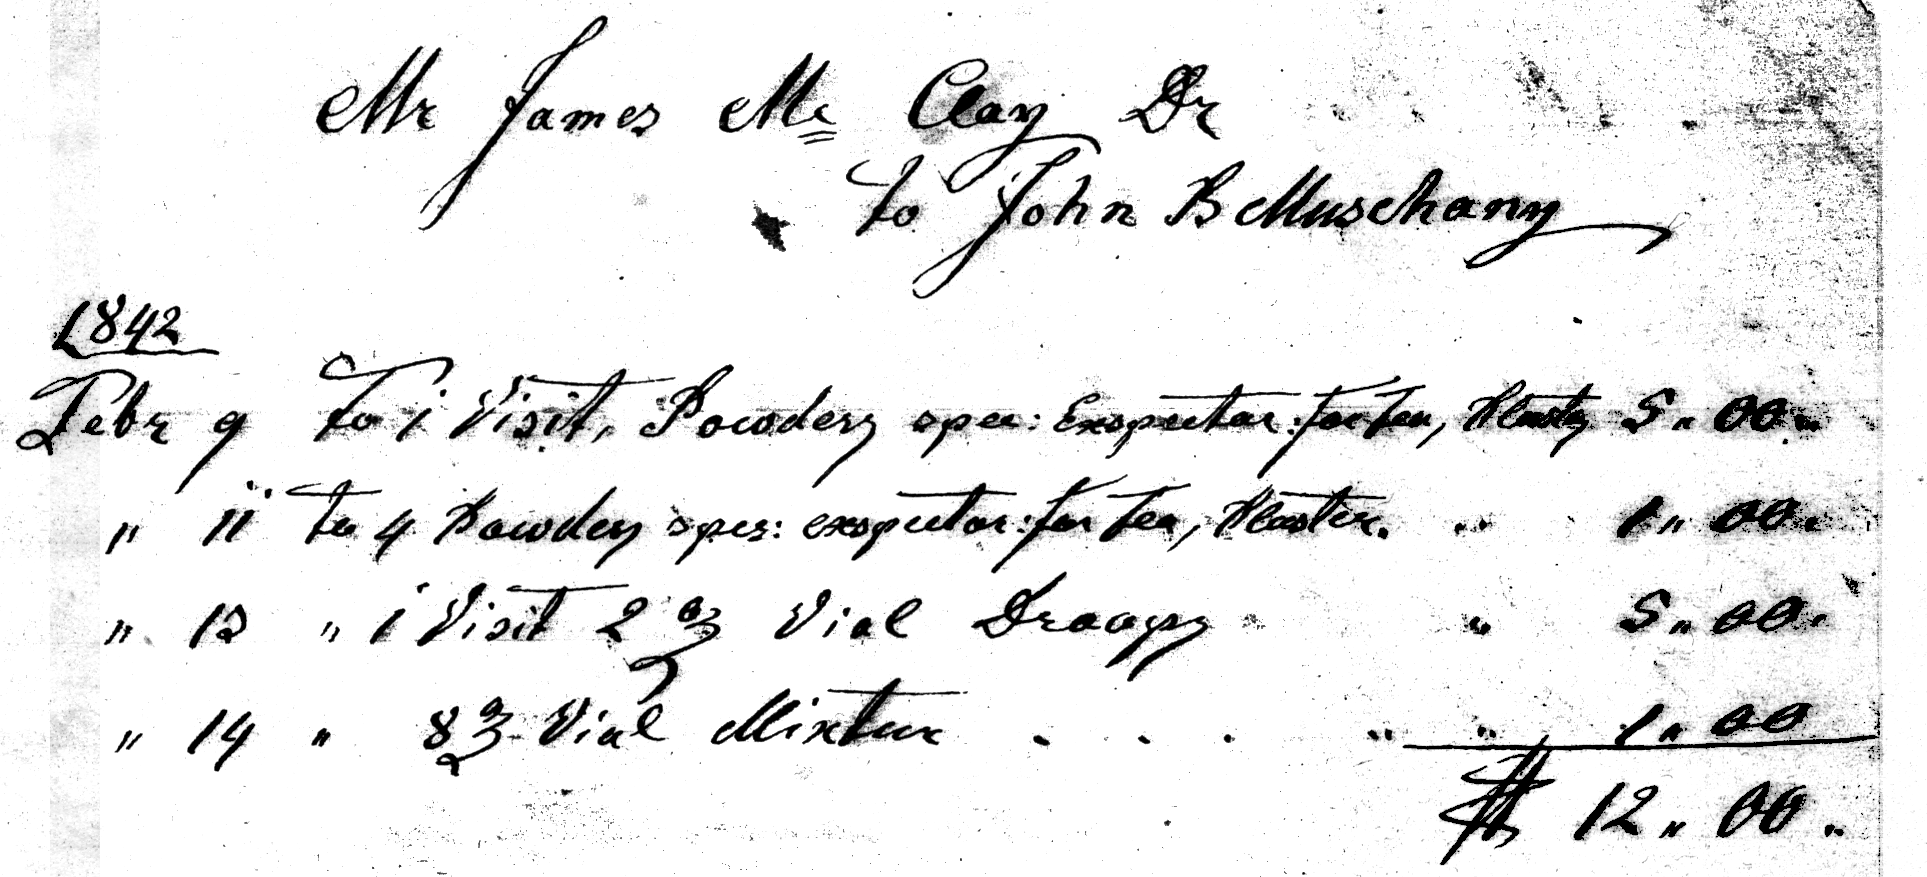 Mr James Mc Clay Dr
to John B Muschany
1842
Febr 9 to 1 Visit, Powders spec: Exspectar: for Tea, Plaster 5 " 00 "
" 11 to 4 Powders spes: exspectar: for Tea, Plaster. " 1 " 00 "
" 12 " 1 Visit 2 ℥ Vial Droops " 5 " 00 "
" 14 " 8 ℥ Vial Mixtur . . . " " 1 " 00
$ 12 " 00 "